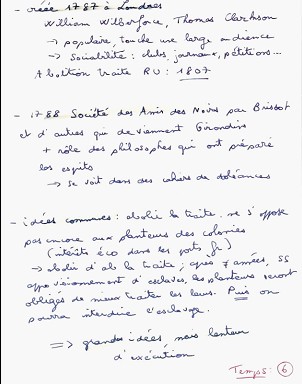 - créée 1787 à Londres
William Wilberforce, Thomas Clarkson
→ populaire, touche une large audience
→ Sociabilité : clubs, journaux, pétitions...
Abolition traite RU : 1807
- 1788 Société des Amis des Noirs par Brissot
et d'autres qui deviennent Girondins
+ rôle des philosophes qui ont préparé
les esprits
→ se voit dans des cahiers de doléances
- idées communes : abolir la traite, ne s'oppose
pas encore aux planteurs des colonies
(intérêts éco dans les ports fr)
→ abolir d'ab la traite ; après 7 années, ss
approvisionnement d'esclaves, les planteurs seront
obligés de mieux traiter les leurs. Puis on
pourra interdire l'esclavage.
⇒ grandes idées, mais lenteur
d'exécution
Temps : 6